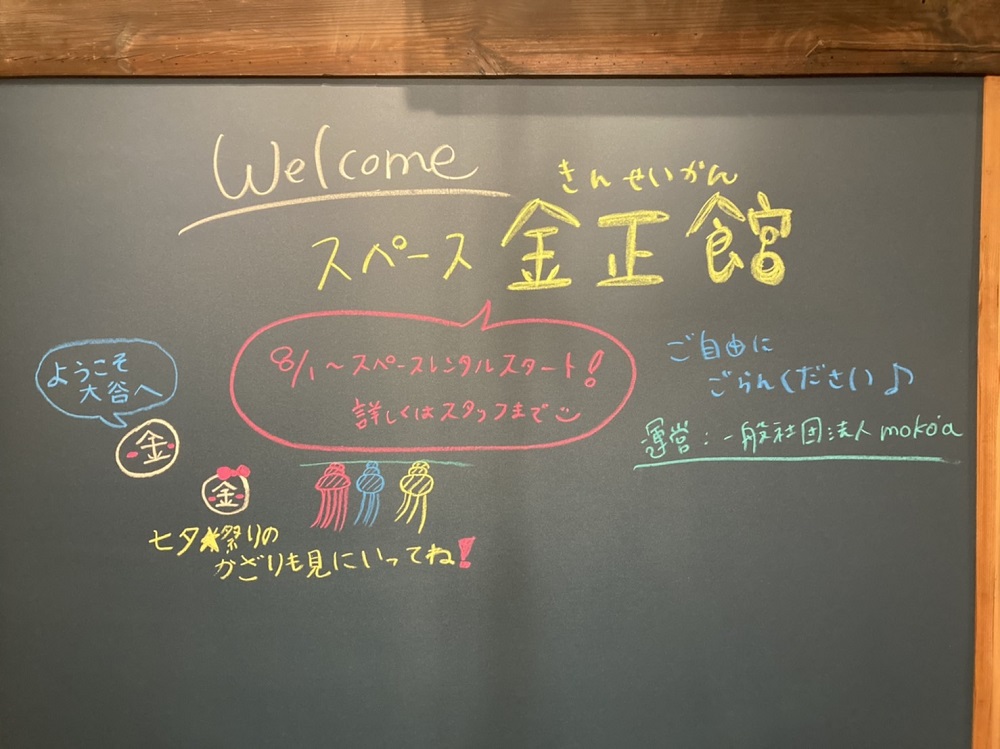 Welcome
きんせいかん
スペース 金正館
8/1～スペースレンタルスタート!
詳しくはスタッフまで
ご自由に
ごらんください♪
運営：一般社団法人mokoa
ようこそ
大谷へ
金
金
七夕★祭りの
かざりも見にいってね!